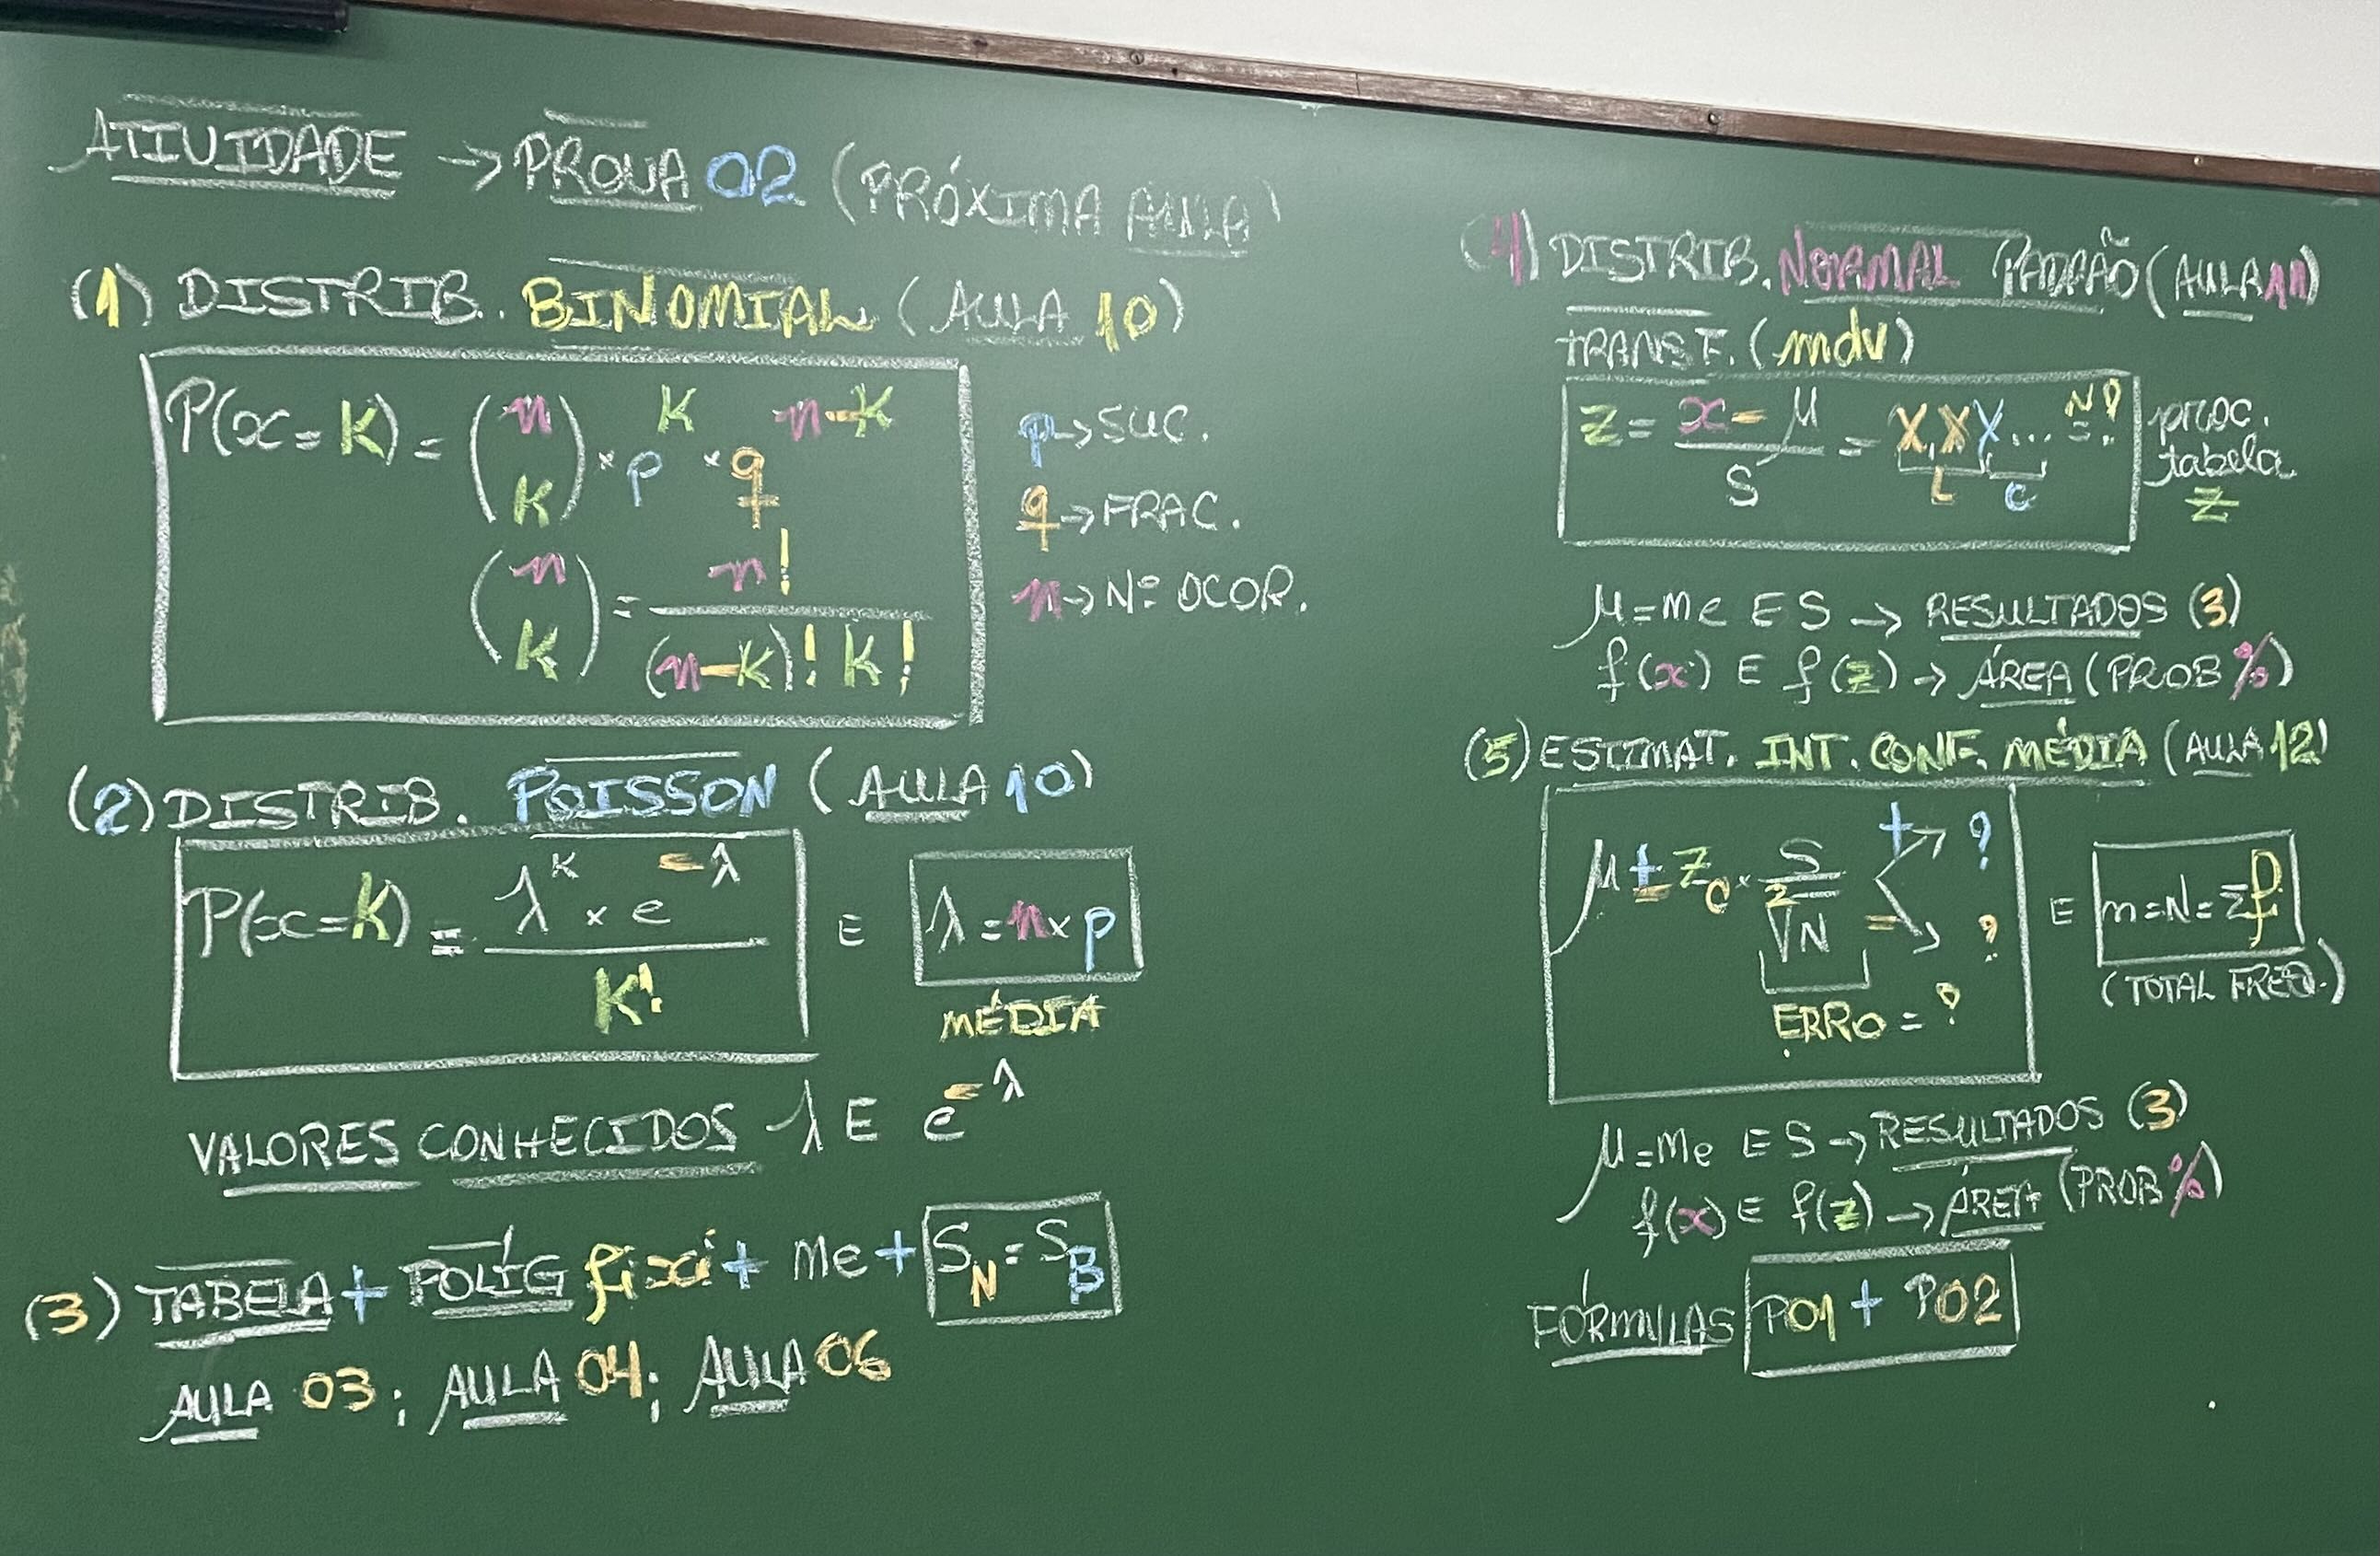 ATIVIDADE → PROVA 02 (PRÓXIMA AULA)
(1) DISTRIB. BINOMIAL (AULA 10)
P(x = K) = (n K) × p^K × q^(n-K)
(n K) = n! / (n-K)! K!
p → SUC.
q → FRAC.
n → Nº OCOR.
(2) DISTRIB. POISSON (AULA 10)
P(x = K) = λ^K × e^-λ / K! E λ = n × p
MÉDIA
VALORES CONHECIDOS λ E e^-λ
(3) TABELA + POLÍG fixi + Me + S_N = S_B
AULA 03; AULA 04; AULA 06
(4) DISTRIB. NORMAL PADRÃO (AULA 11)
TRANSF. (mdv)
Z = x - μ / S = X,XX... = Nº?
L C
proc.
tabela
Z
μ = me E S → RESULTADOS (3)
f(x) E f(z) → ÁREA (PROB %)
(5) ESTIMAT. INT. CONF. MÉDIA (AULA 12)
μ ± Z_C × S / ²√N + → ? - → ? E n = N = Σf
ERRO = ?
(TOTAL FREQ.)
μ = Me E S → RESULTADOS (3)
f(x) E f(z) → ÁREA (PROB %)
FÓRMULAS P01 + P02